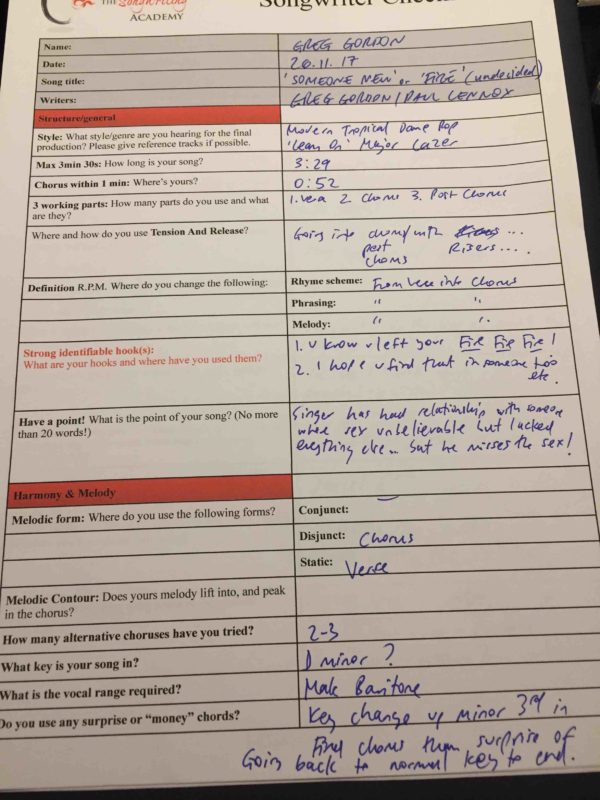 THE SongWriting
ACADEMY
Songwriter Check
Name: GREG GORDON
Date: 26.11.17
Song title: 'SOMEONE NEW' or 'FIRE' (undecided)
Writers: GREG GORDON / PAUL LENNOX
Structure/general
Style: What style/genre are you hearing for the final Modern Tropical Dance Pop
production? Please give reference tracks if possible. 'Lean On' Major Lazer
Max 3min 30s: How long is your song? 3:29
Chorus within 1 min: Where's yours? 0:52
3 working parts: How many parts do you use and what 1. Verse 2. Chorus 3. Post Chorus
are they?
Where and how do you use Tension And Release? Going into chorus with ...
post Risers....
chorus
Definition R.P.M. Where do you change the following: Rhyme scheme: From Verse into Chorus
Phrasing: " "
Melody: " "
Strong identifiable hook(s): 1. U know u left your Fire Fire Fire!
What are your hooks and where have you used them? 2. I hope u find that in someone
etc.
Have a point! What is the point of your song? (No more Singer has had relationship with someone
than 20 words!) where sex unbelievable but lacked
everything else... but he misses the sex!
Harmony & Melody
Melodic form: Where do you use the following forms? Conjunct:
Disjunct: Chorus
Static: Verse
Melodic Contour: Does yours melody lift into, and peak
in the chorus?
How many alternative choruses have you tried? 2-3
What key is your song in? D minor?
What is the vocal range required? Male Baritone
Do you use any surprise or "money" chords? Key change up minor 3rd in
Final chorus then surprise of
Going back to normal key to end.